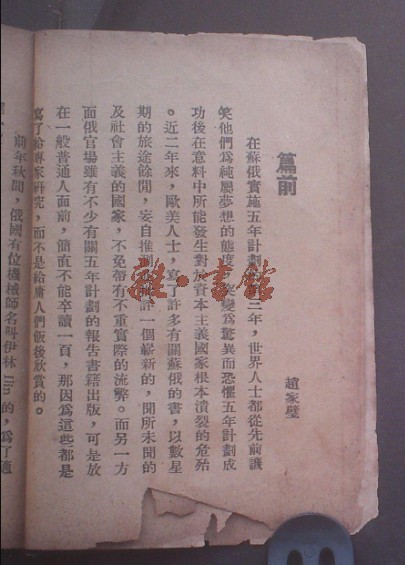 篇前
趙家璧
在蘇俄實施五年計劃的第二年，世界人士都從先前譏
笑他們爲純屬夢想的態度，突變爲驚異而恐懼五年計劃成
功後在意料中所能發生對於資本主義國家根本潰裂的危殆
。近二年來，歐美人士，寫了許多有關蘇俄的書，以數星
期的旅途餘閒，妄自推測或批評一個嶄新的，聞所未聞的
及社會主義的國家，不免帶有不重實際的流弊。而另一方
面俄官塲雖有不少有關五年計劃的報告書籍出版，可是放
在一般普通人面前，簡直不能卒讀一頁，那因爲這些都是
寫了給專家研究，而不是給庸人們飯後欣賞的。
前年秋間，俄國有位機械師名叫伊林 Ilin 的，爲了適
雜·書館